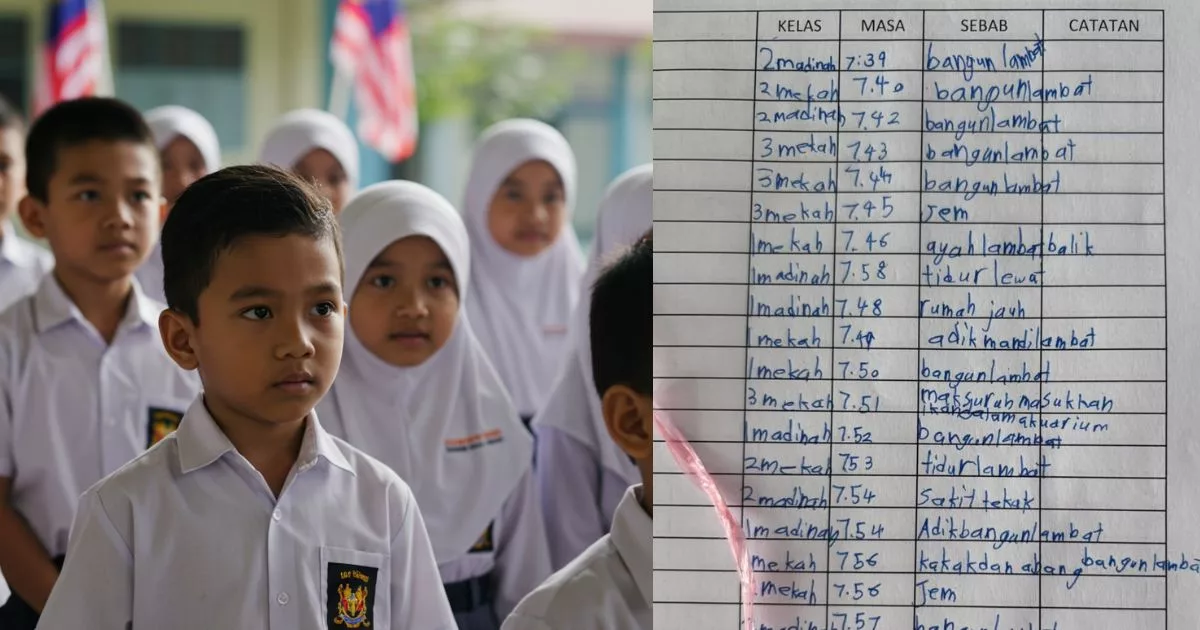 KELAS MASA SEBAB CATATAN
2madinah 7:39 bangun lambat
2 mekah 7.40 bangunlambat
2madinah 7.42 bangunlambat
3 mekah 7.43 bangunlambat
3mekah 7.44 bangunlambat
3mekah 7.45 Jem
1mekah 7.46 ayah lambat balik
1madinah 7.58 tidur lewat
1madinah 7.48 rumah jauh
1mekah adik mandi lambat
1mekah 7.50 bangunlambat
3mekah 7.51 mak suruh masukkan
ikan dalam akuarium
1madinah 7.52 bangunlambat
2mekah 753 tidurlambat
2madinah 7.54 Sakit tekak
1madinah 7.54 Adikbangunlambat
mekah 756 kakakdan abang bangunlamba
mekah 7.56 Jem
7.57